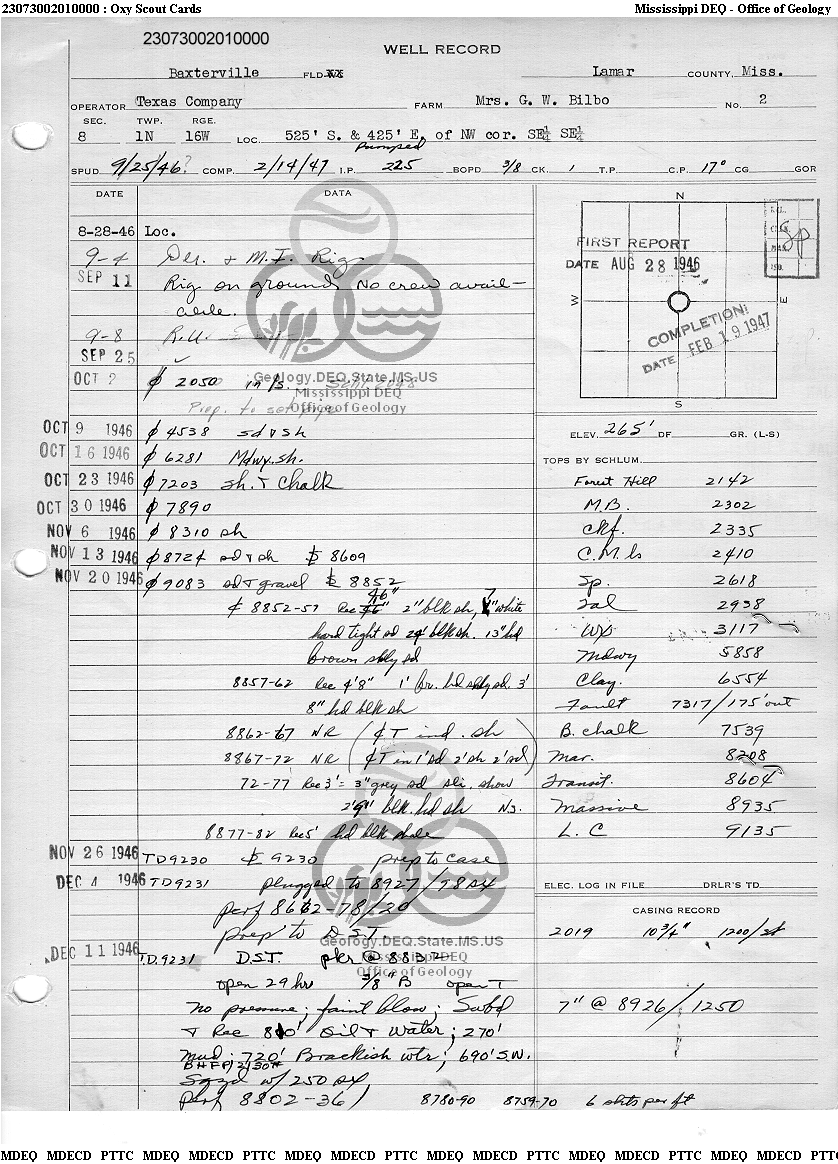 23073002010000 : Oxy Scout Cards Mississippi DEQ - Office of Geology
23073002010000
WELL RECORD
Baxterville FLD. Lamar COUNTY, Miss.
OPERATOR Texas Company FARM Mrs. G. W. Bilbo NO. 2
SEC. TWP. RGE.
8 1N 16W LOC. 525' S. & 425' E. of NW cor. SE¼ SE¼
Pumped
SPUD 9/25/46? COMP. 2/14/47 I.P. 225 BOPD 3/8 CK. T.P. C.P. 17° CG GOR
DATE DATA
8-28-46 Loc.
9-4 Der. + M.I. Rig
SEP 11 Rig on ground No crew avail-
able.
9-8 R.U.
SEP 25 ✓
OCT 2 ₵ 2050
Geology.DEQ.State.MS.US
Mississippi DEQ
Office of Geology
Prep. to set pipe
OCT 9 1946 ₵ 4538 sd & sh
OCT 16 1946 ₵ 6281 Mdwy. sh.
OCT 23 1946 ₵ 7203 sh. + chalk
OCT 30 1946 ₵ 7890
NOV 6 1946 ₵ 8310 sh
NOV 13 1946 ₵ 8724 sd & sh 8609
NOV 20 1946 ₵ 9083 sd + gravel 8852
₵ 8852-57 Rec 46" 2" blk sh, 7" white
hard tight sd 24" blk sh. 13" hd
brown shly sd
8857-62 Rec 4'8" 1' br. hd shly sd. 3'
8" hd blk sh
8862-67 NR (₵T ind. sh)
8867-72 NR (₵T in 1' sd 2' sh 2' sd)
72-77 Rec 3' = 3" grey sd sli. show
2'9" blk. hd sh N.S.
8877-82 Rec 5' hd blk shale
NOV 26 1946 TD 9230 9230 prep to case
DEC 4 1946 TD 9231 plugged to 8927/78 sx
perf 8662-78/20
prep to DST
Geology.DEQ.State.MS.US
Mississippi DEQ
Office of Geology
DEC 11 1946 TD. 9231 D.S.T. pkr @ 8832
open 29 hrs 3/8" B open T
No pressure; faint blow; Swbd
+ Rec 810' oil + water; 270'
mud: 720' Brackish wtr; 690' S.W.
BHFP 2130#
Sqzd w/ 250 sx
Perf 8802-36) 8780-90 8759-70 6 shts per ft
N
W E
S
FIRST REPORT
DATE AUG 28 1946
COMPLETION:
DATE FEB 19 1947
Sp
ELEV. 265' DF GR. (L-S)
TOPS BY SCHLUM.
Forest Hill 2142
M.B. 2302
Ckf. 2335
C.M. ls 2410
Sp. 2618
Tal 2938
Wx 3117
Mdwy 5858
Clay. 6554
Fault 7317/175' out
B. chalk 7539
Mar. 8208
Transit. 8604
Massive 8935
L. C 9135
ELEC. LOG IN FILE DRLR'S TD
CASING RECORD
2019 10¾" 1200/sx
7" @ 8926/1250
MDEQ MDECD PTTC MDEQ MDECD PTTC MDEQ MDECD PTTC MDEQ MDECD PTTC MDEQ MDECD PTTC MDEQ MDECD PTTC